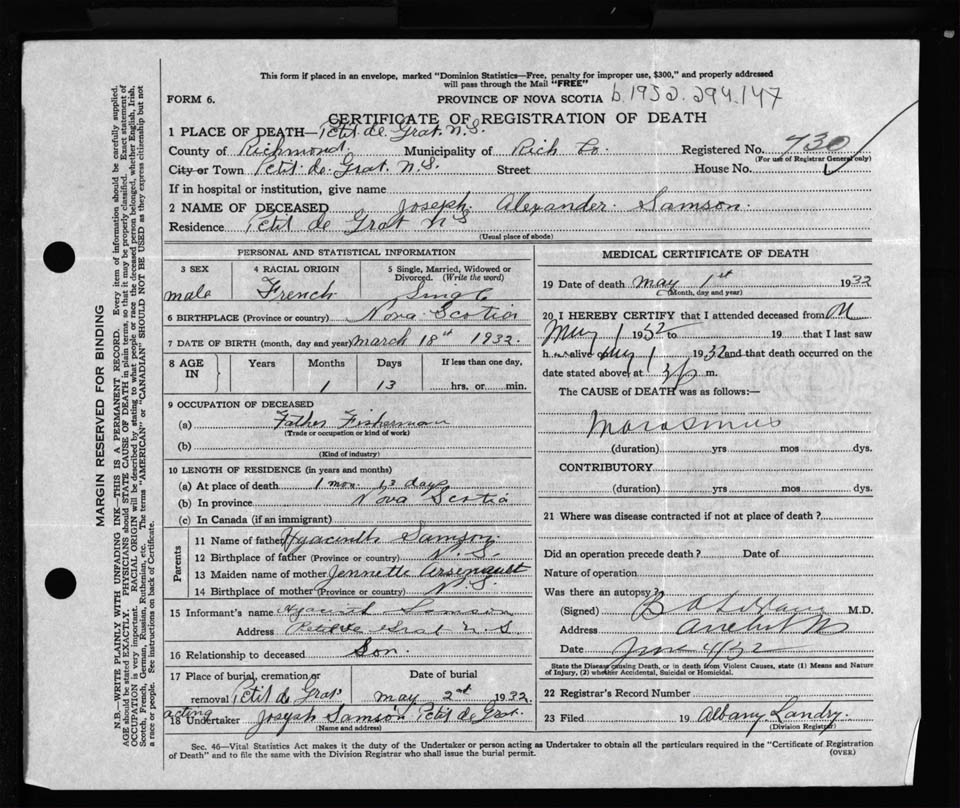 This form if placed in an envelope, marked "Dominion Statistics—Free, penalty for improper use, $300," and properly addressed
will pass through the Mail "FREE"
FORM 6. PROVINCE OF NOVA SCOTIA b.1932.294.147
CERTIFICATE OF REGISTRATION OF DEATH
1 PLACE OF DEATH—Petit de Grat N.S.
County of Richmond. Municipality of Rich Co. Registered No. 730
(For use of Registrar General only)
City or Town Petit de Grat N.S. Street House No.
If in hospital or institution, give name
2 NAME OF DECEASED Joseph Alexander Samson.
Residence Petit de Grat N S
(Usual place of abode)
PERSONAL AND STATISTICAL INFORMATION
3 SEX 4 RACIAL ORIGIN 5 Single, Married, Widowed or
Divorced. (Write the word)
male French Single
6 BIRTHPLACE (Province or country) Nova Scotia
7 DATE OF BIRTH (month, day and year) March 18th 1932.
8 AGE IN Years Months Days If less than one day,
1 13 hrs. or min.
9 OCCUPATION OF DECEASED
(a) Father Fisherman
(Trade or occupation or kind of work)
(b)
(Kind of industry)
10 LENGTH OF RESIDENCE (in years and months)
(a) At place of death 1 mon 13 days
(b) In province Nova Scotia
(c) In Canada (if an immigrant)
Parents
11 Name of father Hyacinth Samson.
12 Birthplace of father (Province or country) N.S.
13 Maiden name of mother Jennette Arsenault
14 Birthplace of mother (Province or country) N.S.
15 Informant's name Samson
Address Petit de Grat N S
16 Relationship to deceased Son.
17 Place of burial, cremation or Date of burial
removal Petit de Grat May 2nd 1932
acting
18 Undertaker Joseph Samson Petit de Grat.
(Name and address)
MEDICAL CERTIFICATE OF DEATH
19 Date of death May 1st 1932
(Month, day and year)
20 I HEREBY CERTIFY that I attended deceased from M
May 1 1932 to 19 that I last saw
h alive on May 1 1932 and that death occurred on the
date stated above at 3 p m.
The CAUSE of DEATH was as follows:—
Marasmus
(duration) yrs mos. dys.
CONTRIBUTORY
(duration) yrs mos. dys.
21 Where was disease contracted if not at place of death?
Did an operation precede death? Date of
Nature of operation
Was there an autopsy?
(Signed) M.D.
Address Arichat NS
Date
State the Disease causing Death, or in death from Violent Causes, state (1) Means and Nature
of Injury, (2) whether Accidental, Suicidal or Homicidal.
22 Registrar's Record Number
23 Filed 19 Albany Landry.
(Division Registrar)
Sec. 46—Vital Statistics Act makes it the duty of the Undertaker or person acting as Undertaker to obtain all the particulars required in the "Certificate of Registration
of Death" and to file the same with the Division Registrar who shall issue the burial permit. (OVER)
MARGIN RESERVED FOR BINDING
N.B.—WRITE PLAINLY WITH UNFADING INK—THIS IS A PERMANENT RECORD. Every item of information should be carefully supplied.
AGE should be stated EXACTLY. PHYSICIANS should STATE CAUSE OF DEATH in plain terms, so that it may be properly classified. Exact statement of
OCCUPATION is very important. RACIAL ORIGIN will be described by stating to what people or race the deceased person belonged, whether English, Irish,
Scotch, French, German, Russian, Ruthenian, etc. The terms "AMERICAN" or "CANADIAN" SHOULD NOT BE USED as they express citizenship but not
a race or people. See instructions on back of Certificate.